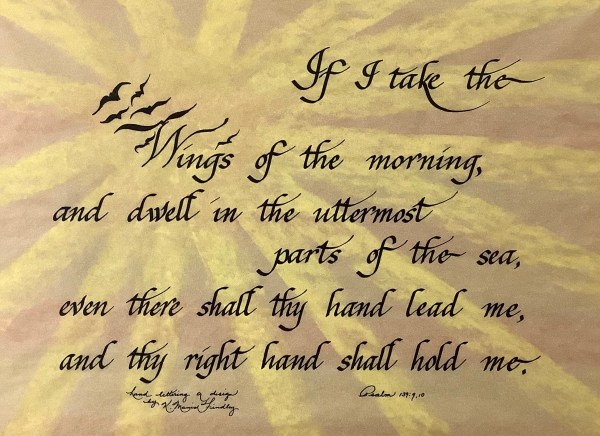 If I take the
Wings of the morning,
and dwell in the uttermost
parts of the sea,
even there shall thy hand lead me,
and thy right hand shall hold me.
hand lettering & design
by K.
Psalm 139:9,10